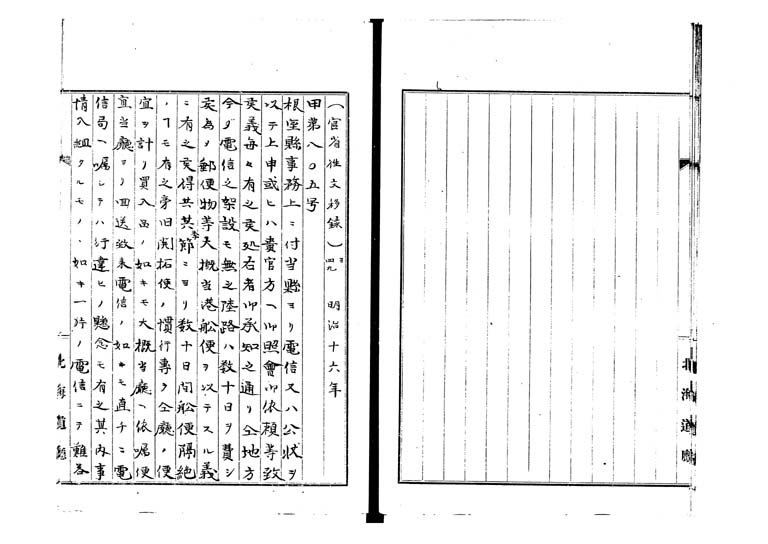 （官省往文移録）
明治十六年
甲第八〇五号
根室縣事務上ニ付当縣ヨリ電信又ハ公状ヲ
以テ上申或ヒハ貴官方ヘ御照會御依頼等致
候義毎々有之候処右者御承知之通リ仝地方
今ダ電信之架設モ無之陸路ハ数十日ヲ費シ
候為メ郵便物等大概当港舩便ヲ以テスル義
ニ有之候得共其季節ニヨリ数十日間舩便隔絶
ノ丁モ有之旁旧開拓使ノ慣行専ラ仝廳ノ便
宜ヲ計リ買入品ノ如キモ大概当廳ヘ依嘱便
宜当廳ヨリ回送致来電信ノ如キモ直チニ電
信局ヘ嘱シテハ行違ヒノ懸念モ有之其内事
情入組タルモノノ如キ一時ノ電信ニテ難各
北海道廳
北海道廳